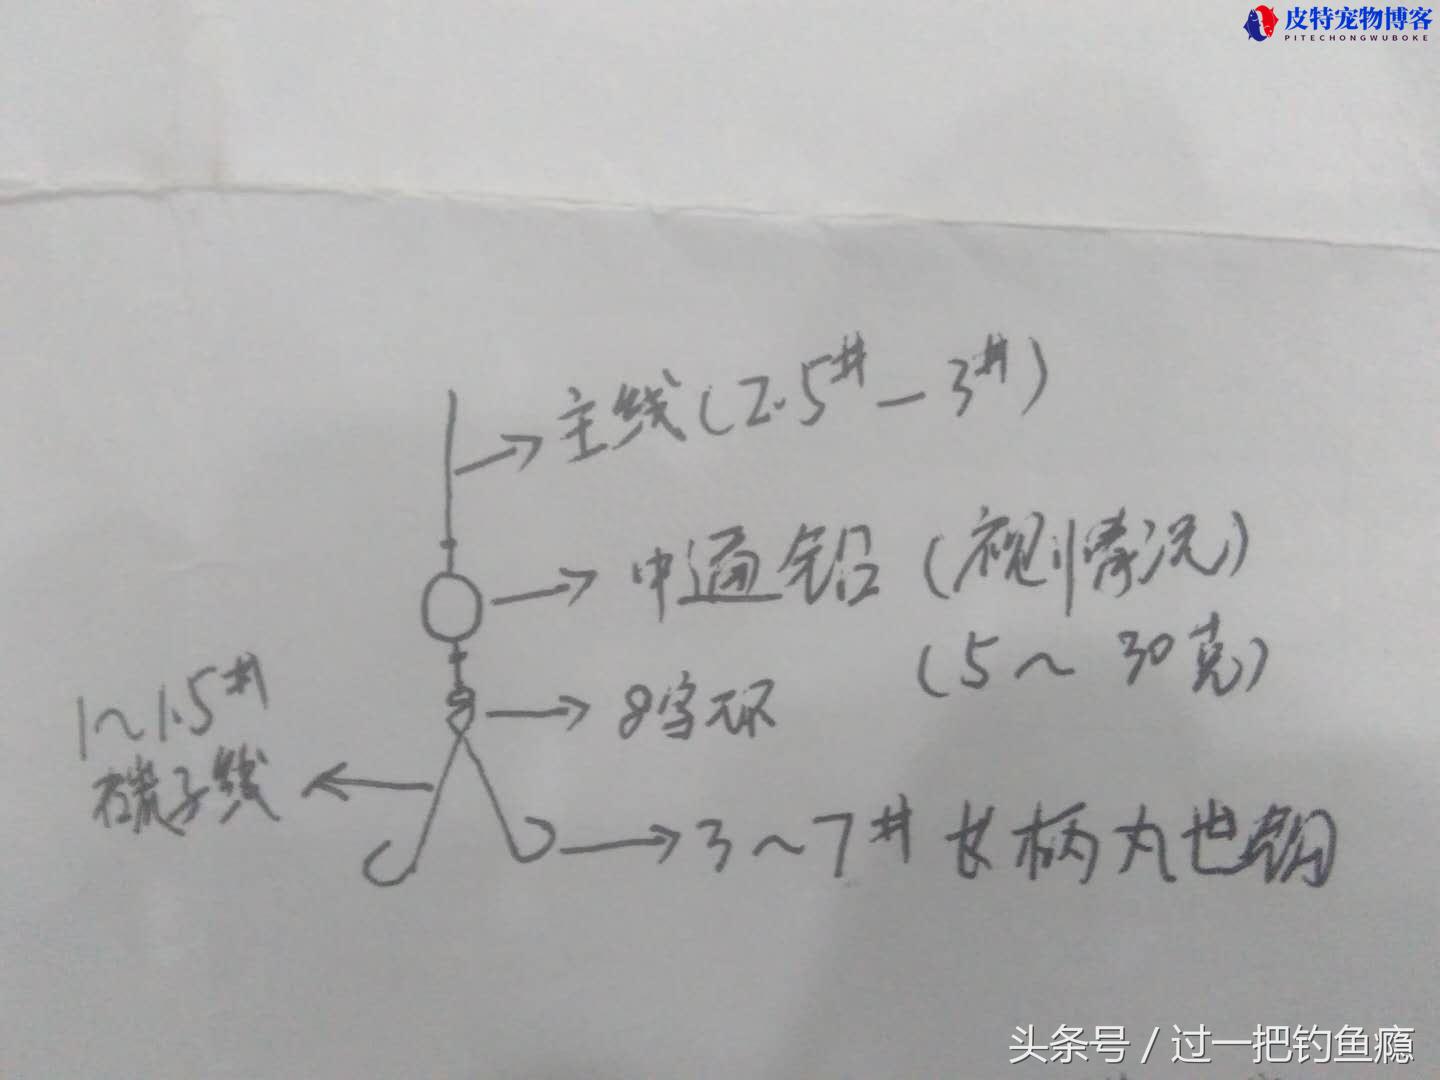 皮特宠物博客
PITECHONGWUBOKE
主线(2.5#-3#)
中通铅(视情况)
(5~30克)
8字环
1~1.5#
碳子线
3~7#长柄丸世钩
头条号/过一把钓鱼瘾